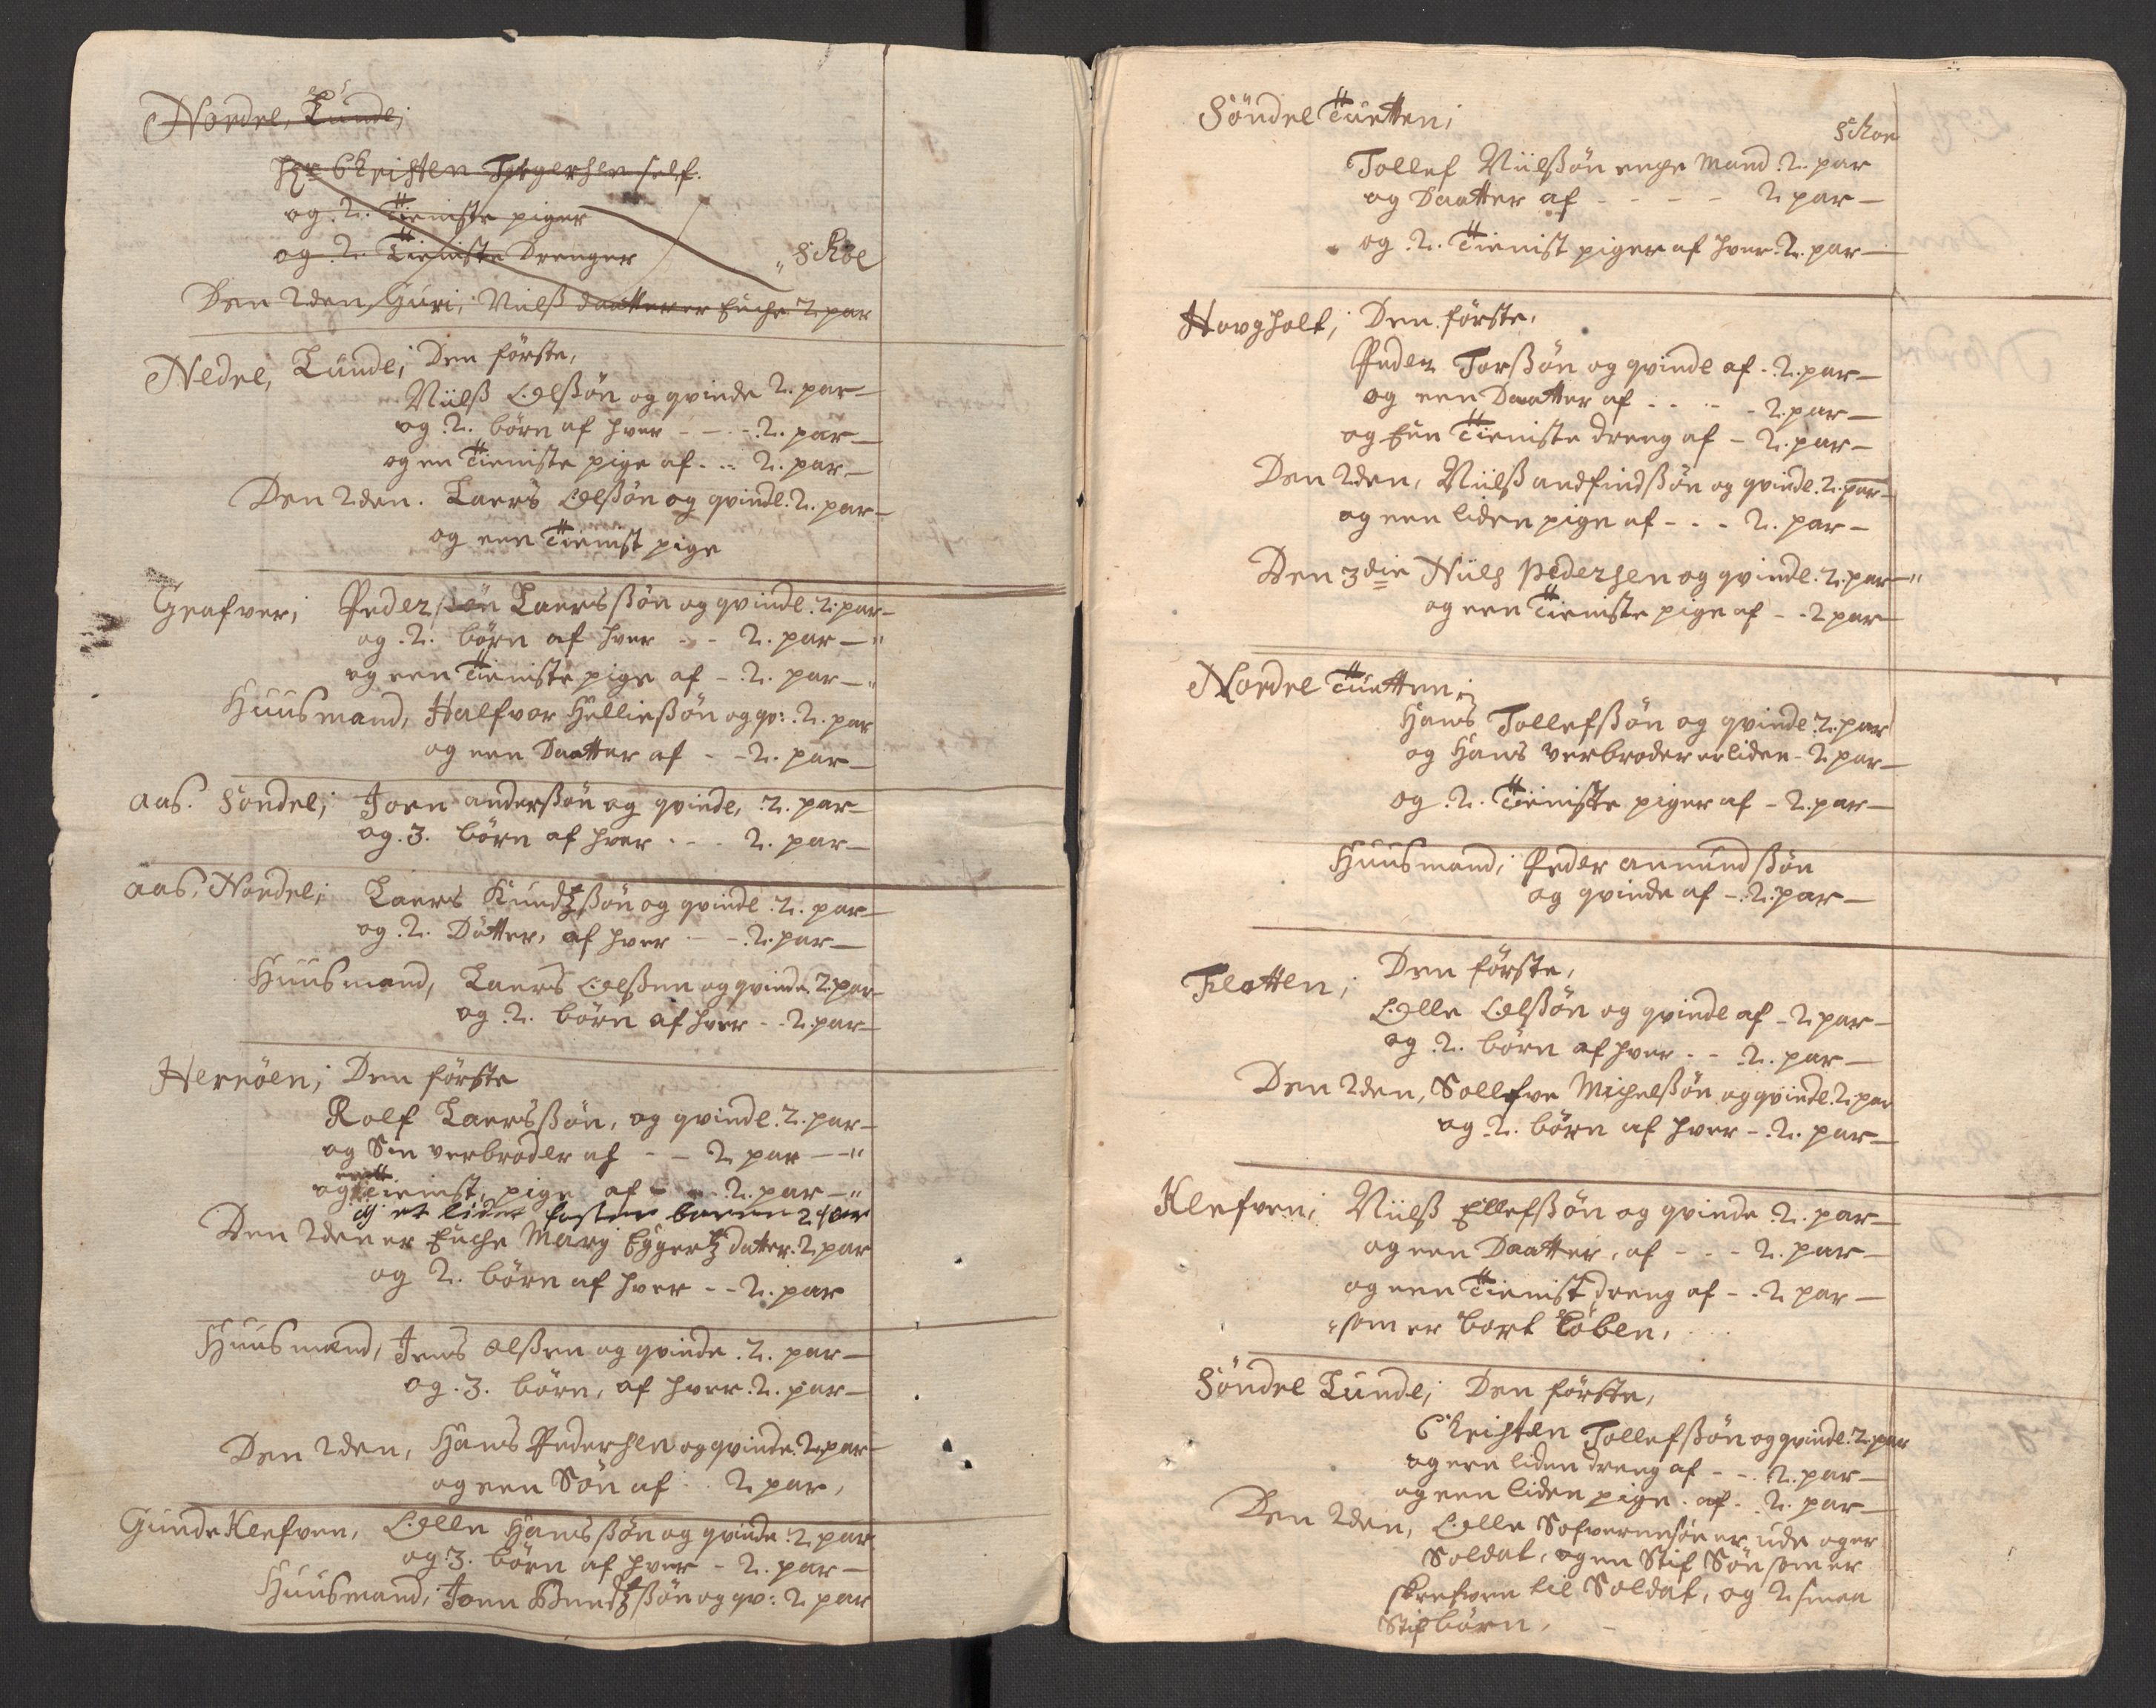 Nordre, Lunde;
Hr: Christen Jørgersen self.
og .2. Tieniste piger
og .2. Tieniste Drenger
schoe
Den 2den, Guri; Niilß daatter er Enche 2 par
Nedre, Lunde; Den förste,
Niilß Olßön og qvinde 2. par
og .2. börn af hver - - - .2. par
og en Tieniste pige af - - 2. par
Den 2den. Laers Olßön og qvinde .2. par
og een Tienist pige
Grafver; Peder Laersßön og qvinde .2. par
og .2. börn af hver - - 2. par
og een Tieniste pige af - .2. par
Huusmand, Halfvor Helließön og qv: .2. par
og een Daatter af - - 2. par
Aas. Söndre; Joen anderßön og qvinde, .2. par
og .3. börn af hver - - 2. par
Aas, Nordre; Laers Knudtzßön og qvinde .2. par
og .2. Dötter, af hver - - .2. par
Huusmand, Laers Olßen og qvinde .2. par
og .2. börn af hver - - 2. par
Hernöen; Den förste
Rolf Laersßön, og qvinde .2. par
og Sin verbroder af - - 2 par
og een Tienist, pige af - - .2. par
og et lidet foster barn 2 par
Den 2den er Enche Mary Eggertz datter .2 par
og 2. börn af hver - - 2. par
Huusmand, Jens olßen og qvinde .2. par
og .3. börn, af hver .2. par
Den 2den, Hans Pedersen og qvinde .2. par
og een Sön af - - 2 par,
Gunde Klefven, Olle Hansßön og qvinde .2 par
og .3. börn af hver - 2. par
Huusmand, Joen Bendtzßön og qv: 2 par
Söndre Tuetten;
schoe
Tollef Niilßön enche mand .2. par
og Daatter af - - - - 2 par
og .2. Tienist piger af hver .2. par
Hovgholt; Den förste,
Peder Torßön og qvinde af - .2. par
og een Daatter af - - - - 2. par
og Een Tieniste dreng af - 2. par
Den 2den, Niilß andfindßön og qvinde .2. par
og een liden pige af - - - 2. par
Den 3die Niels Pedersen og qvinde .2. par
og een Tieniste pige af - - 2 par
Nordre Tuetten;
Hans Tollefßön og qvinde .2. par
og Hans verbroder er liden - 2 par
og .2. Tieniste piger af - 2. par
Huusmand, Peder anundßön
og qvinde af - .2. par
Flatten; Den förste,
Olle Olßön og qvinde af - 2 par
og .2. börn af hver - - 2. par
Den 2den, Sollefve Michelßön og qvinde .2 par
og .2. börn af hver - .2. par
Klefven; Niilß Ellefßön og qvinde .2. par
og een Daatter, af - - - 2. par
og een Tienist dreng af - - 2 par
som er bort löben,
Söndre Lunde; Den förste,
Christen Tollefßön og qvinde .2. par
og een liden dreng af - - .2. par
og een liden pige. af - 2. par
Den 2den, Olle Sofvernsön er ude og er
Soldat, og en Stif Sön som er
skrefven til Soldat, og 2 smaa
Stifbörn,